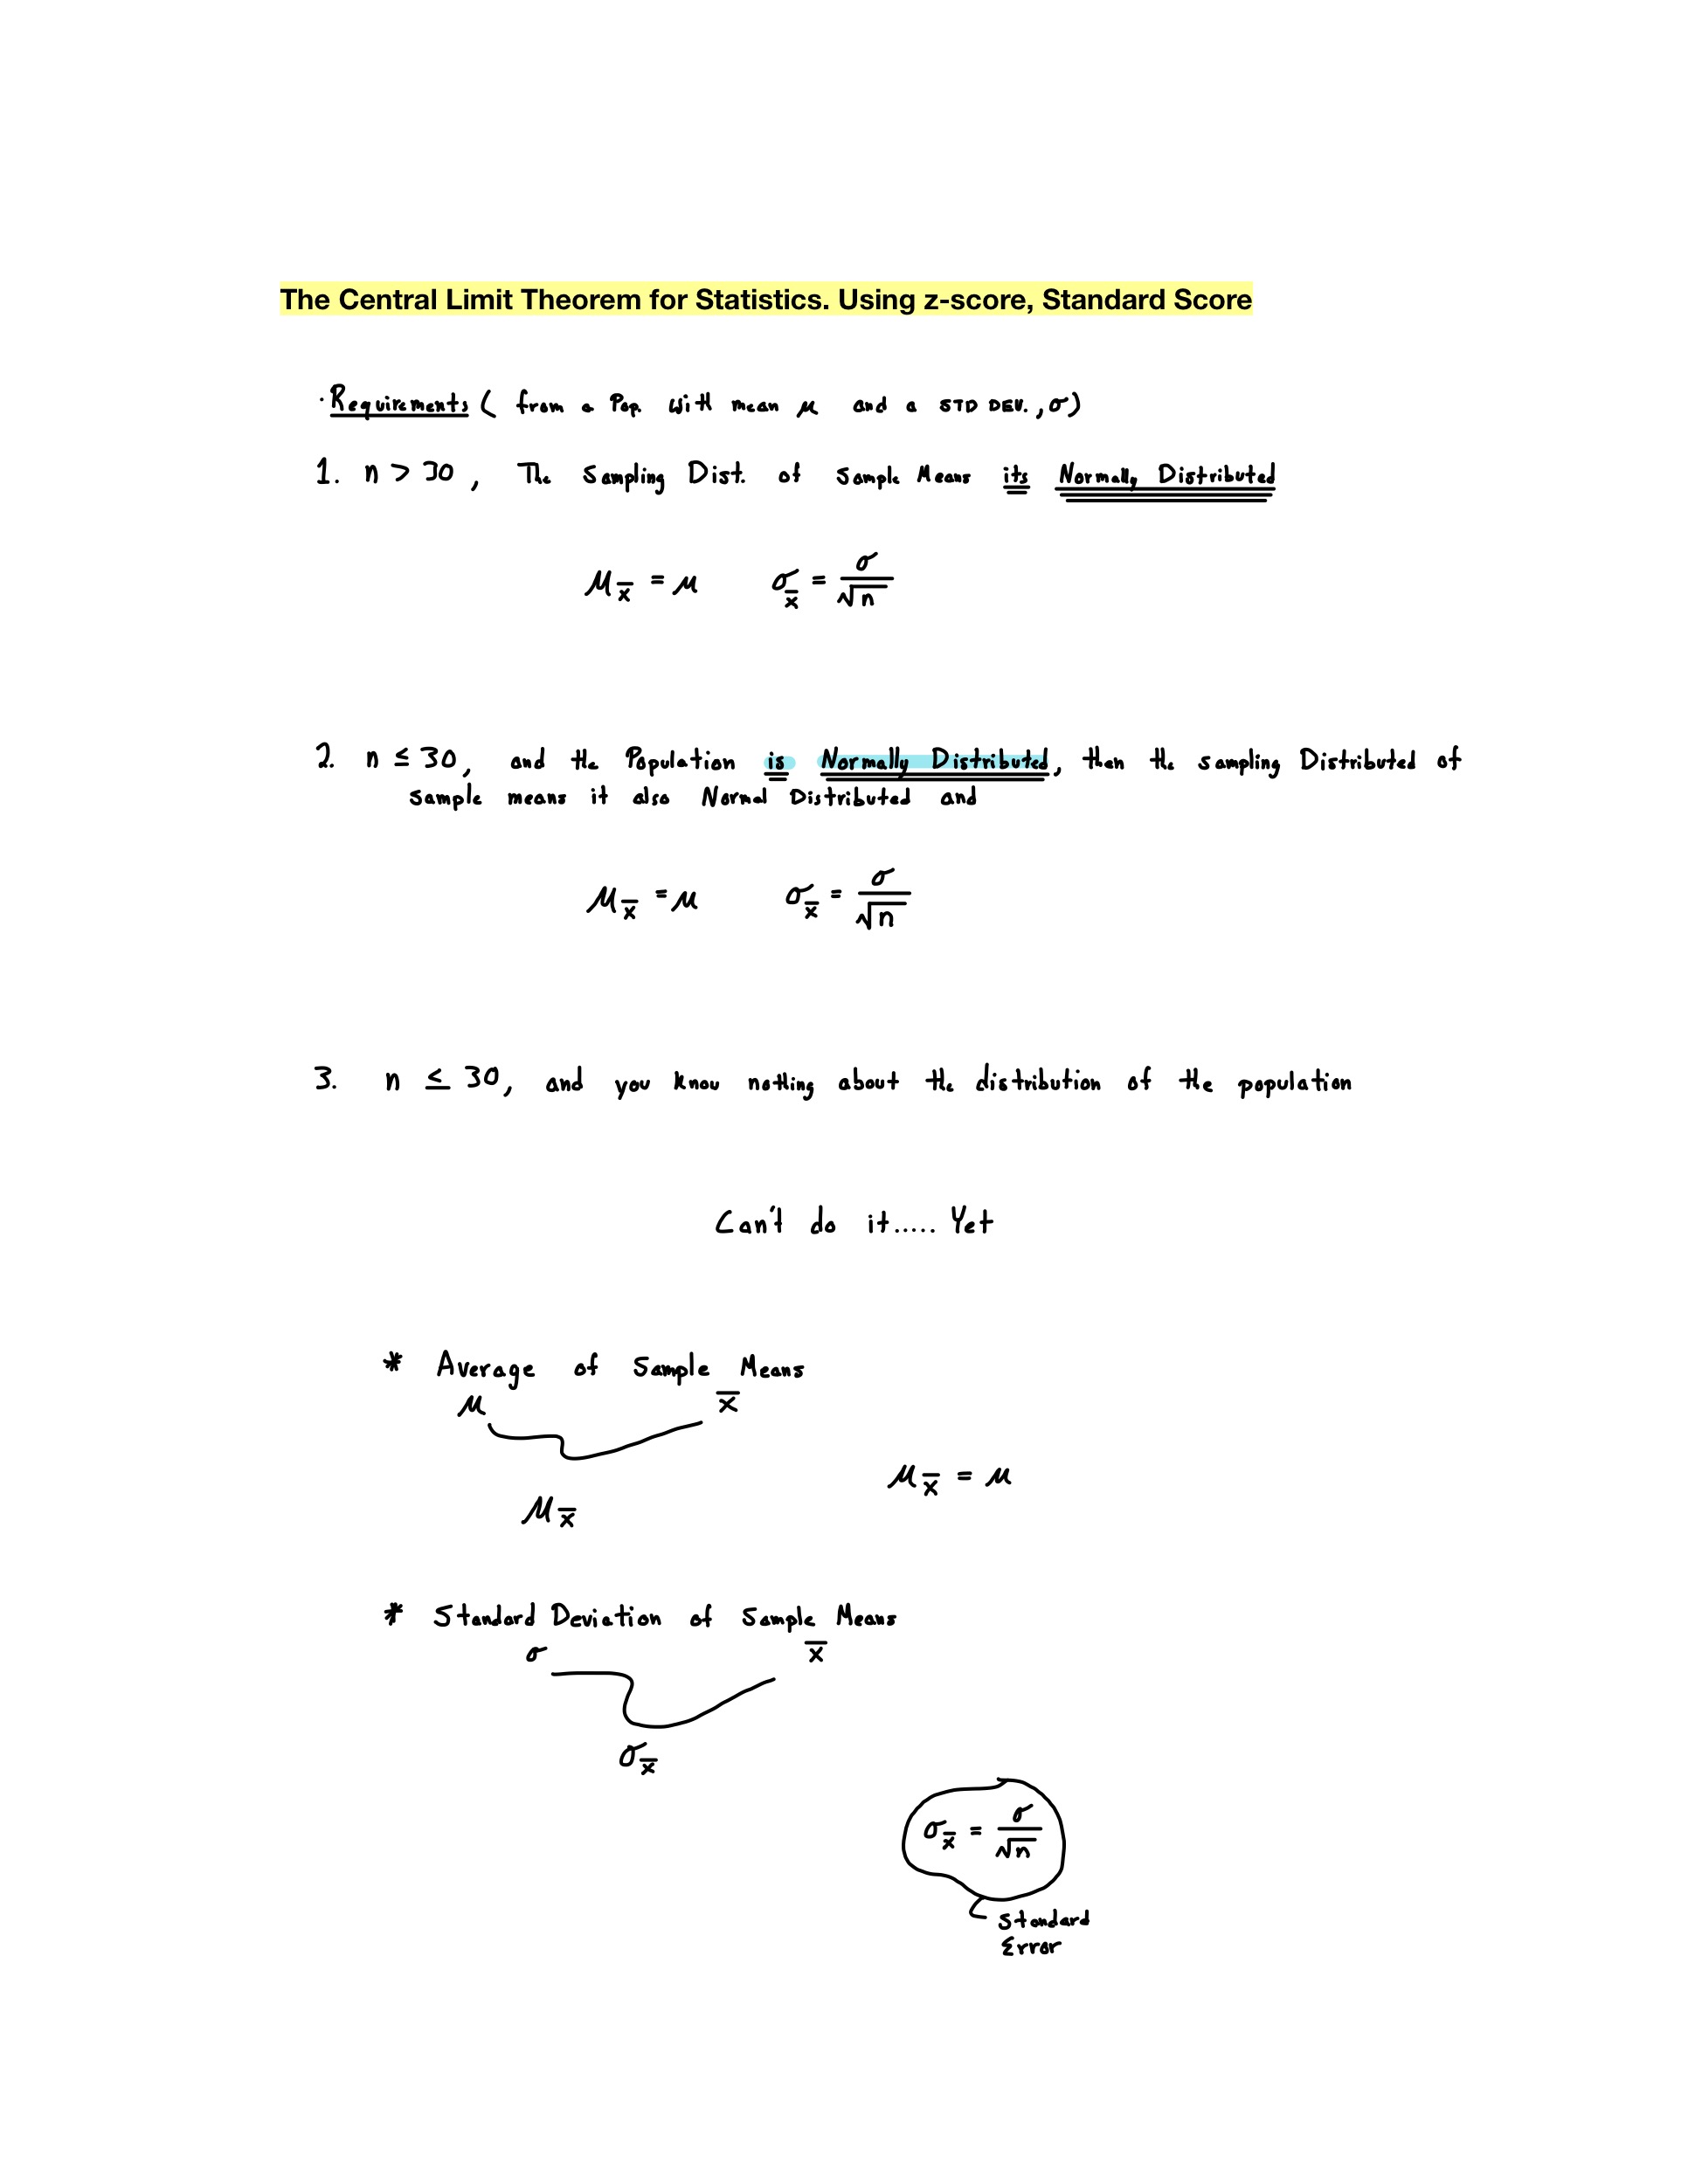 The Central Limit Theorem for Statistics. Using z-score, Standard Score
· Requirements ( from a Pop. with mean μ and a STD DEV., σ)
1. n > 30, The Sampling Dist. of Sample Means its Normally Distributed
μ_x̄ = μ σ_x̄ = σ/√n
2. n ≤ 30, and the Population is Normally Distributed, then the sampling Distributed of
sample means it also Normal Distributed and
μ_x̄ = μ σ_x̄ = σ/√n
3. n ≤ 30, and you know nothing about the distribution of the population
Can't do it..... Yet
* Average of Sample Means
μ x̄
μ_x̄ = μ
μ_x̄
* Standard Deviation of Sample Means
σ x̄
σ_x̄
σ_x̄ = σ/√n
Standard
Error